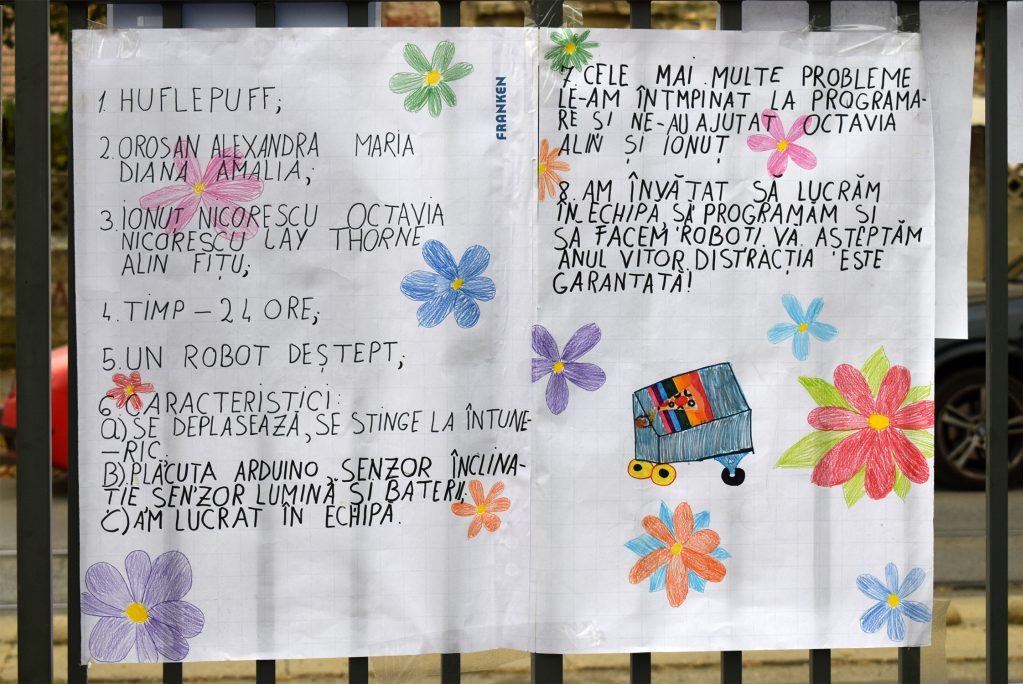 1. HUFLEPUFF;
2. OROSAN ALEXANDRA MARIA
DIANA AMALIA;
3. IONUT NICORESCU OCTAVIA
NICORESCU LAY THORNE
ALIN FIȚU;
4. TIMP – 24 ORE;
5. UN ROBOT DEȘTEPT;
6. CARACTERISTICI:
a) SE DEPLASEAZĂ, SE STINGE LA ÎNTUNE-
-RIC.
B) PLĂCUȚA ARDUINO, SENZOR ÎNCLINA-
ȚIE, SENZOR LUMINĂ ȘI BATERII;
C) AM LUCRAT ÎN ECHIPĂ.
FRANKEN
7. CELE MAI MULTE PROBLEME
LE-AM ÎNTMPINAT LA PROGRAMA-
RE ȘI NE-AU AJUTAT OCTAVIA
ALIN ȘI IONUȚ
8. AM ÎNVĂȚAT SĂ LUCRĂM
ÎN ECHIPĂ, SĂ PROGRAMĂM ȘI
SĂ FACEM ROBOȚI. VĂ AȘTEPTĂM
ANUL VIITOR, DISTRACȚIA ESTE
GARANTATĂ!